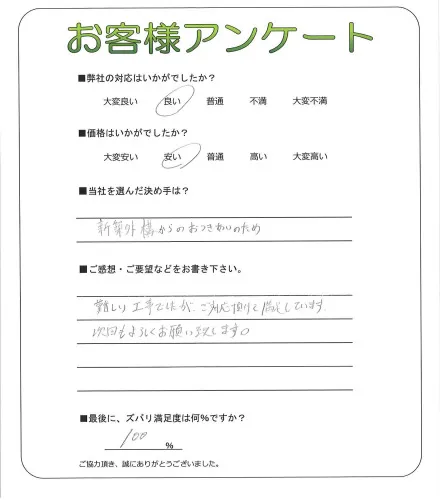 お客様アンケート
■弊社の対応はいかがでしたか？
大変良い 良い 普通 不満 大変不満
■価格はいかがでしたか？
大変安い 安い 普通 高い 大変高い
■当社を選んだ決め手は？
新築外構からのおつきあいのため
■ご感想・ご要望などをお書き下さい。
難しい工事でしたが、ご対応頂けて満足しています。
次回もよろしくお願い致します。
■最後に、ズバリ満足度は何%ですか？
100 %
ご協力頂き、誠にありがとうございました。